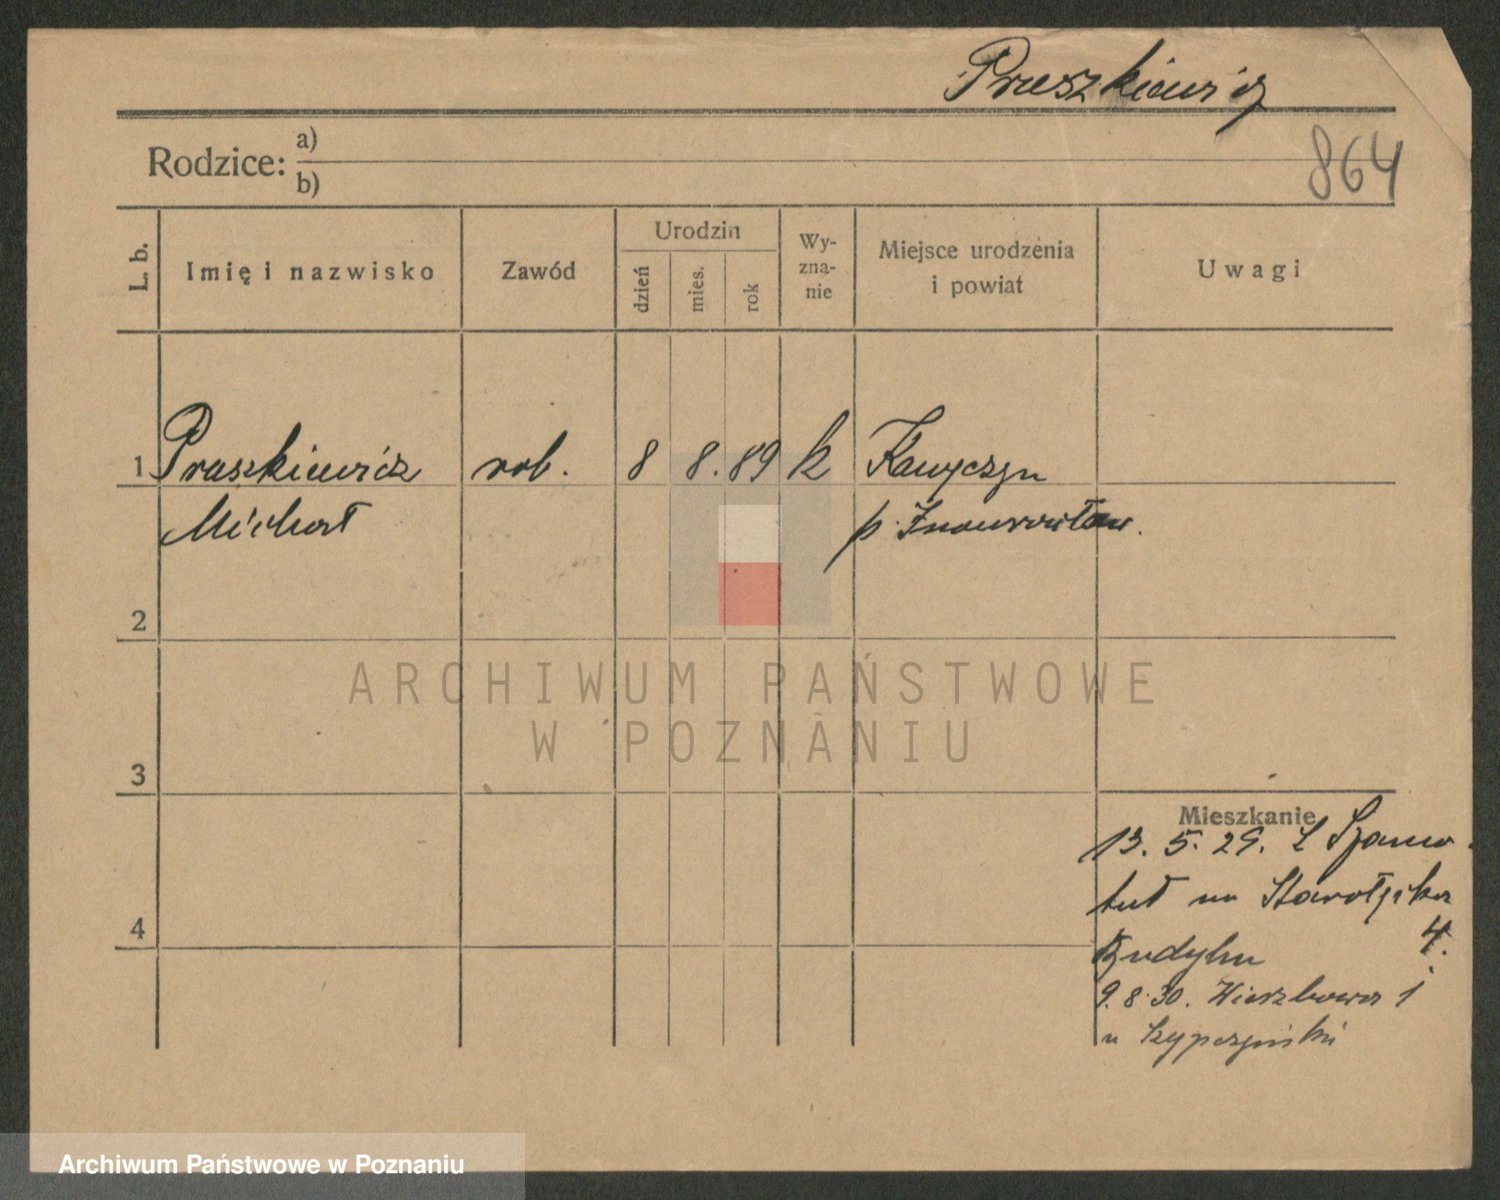 Pruszkiewicz
864
Rodzice: a)
b)
L. b. Imię i nazwisko Zawód Urodzin dzień mies. rok Wy-zna-nie Miejsce urodzenia i powiat Uwagi
1 Pruszkiewicz rob. 8 8. 89 k
Michał p. Inowrocław.
2
ARCHIWUM PAŃSTWOWE
W POZNANIU
3
Mieszkanie
13. 5. 29. z Szamo
tuł na Starołęcka
4
4.
9. 8. 30. Wierzbowa 1
u
Archiwum Państwowe w Poznaniu